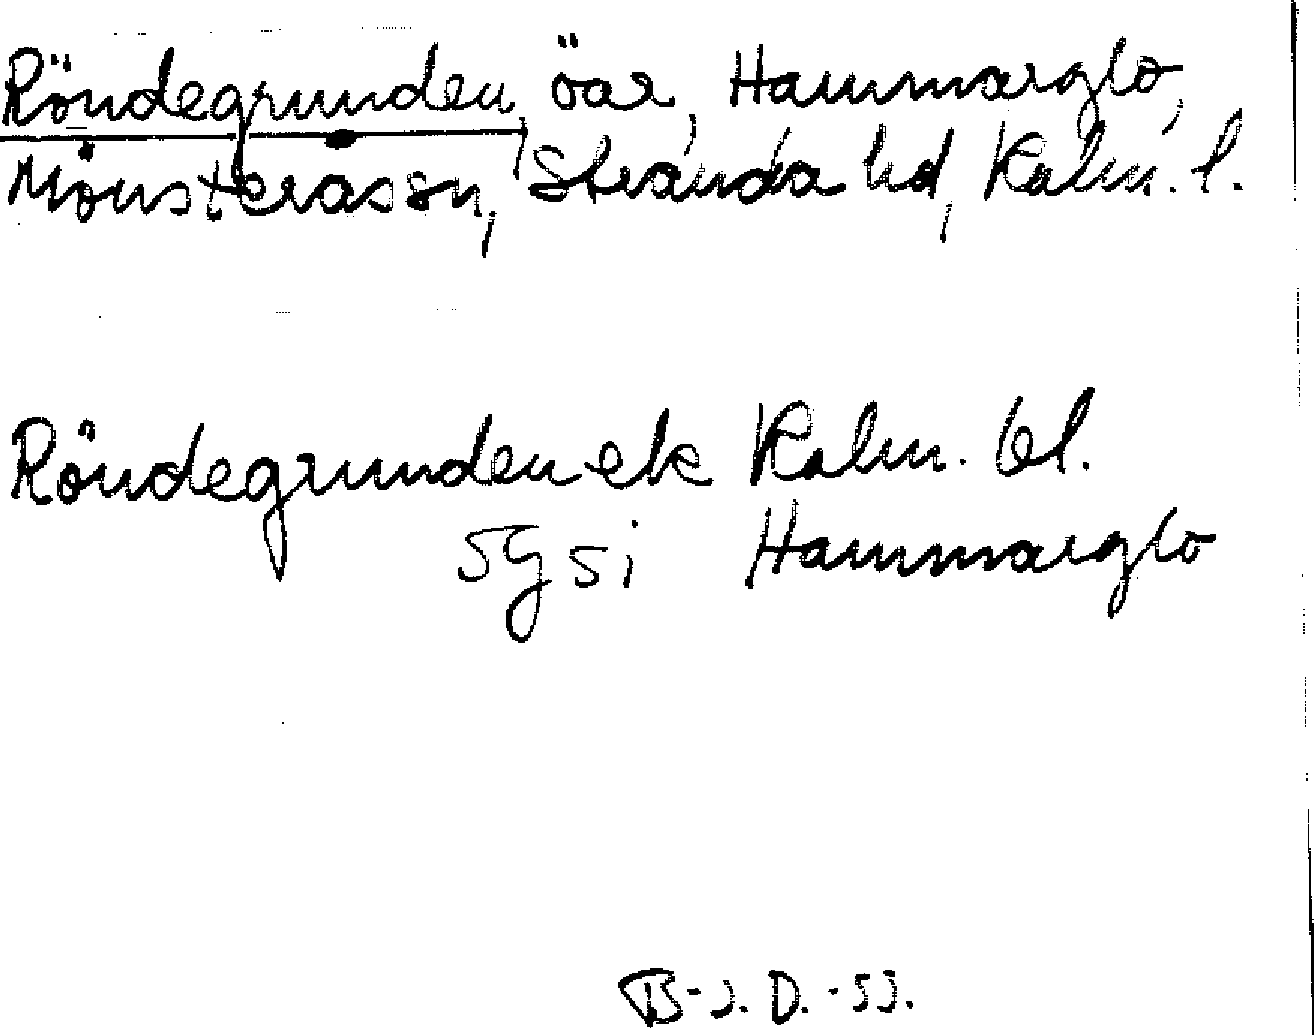 Röndegrunden, öar, Hammarglo,
Mönsteråssn, Stranda hd, Kalm. l.
Röndegrunden ek Kalm. bl.
5g5i Hammarglo
B-J. D. -53.